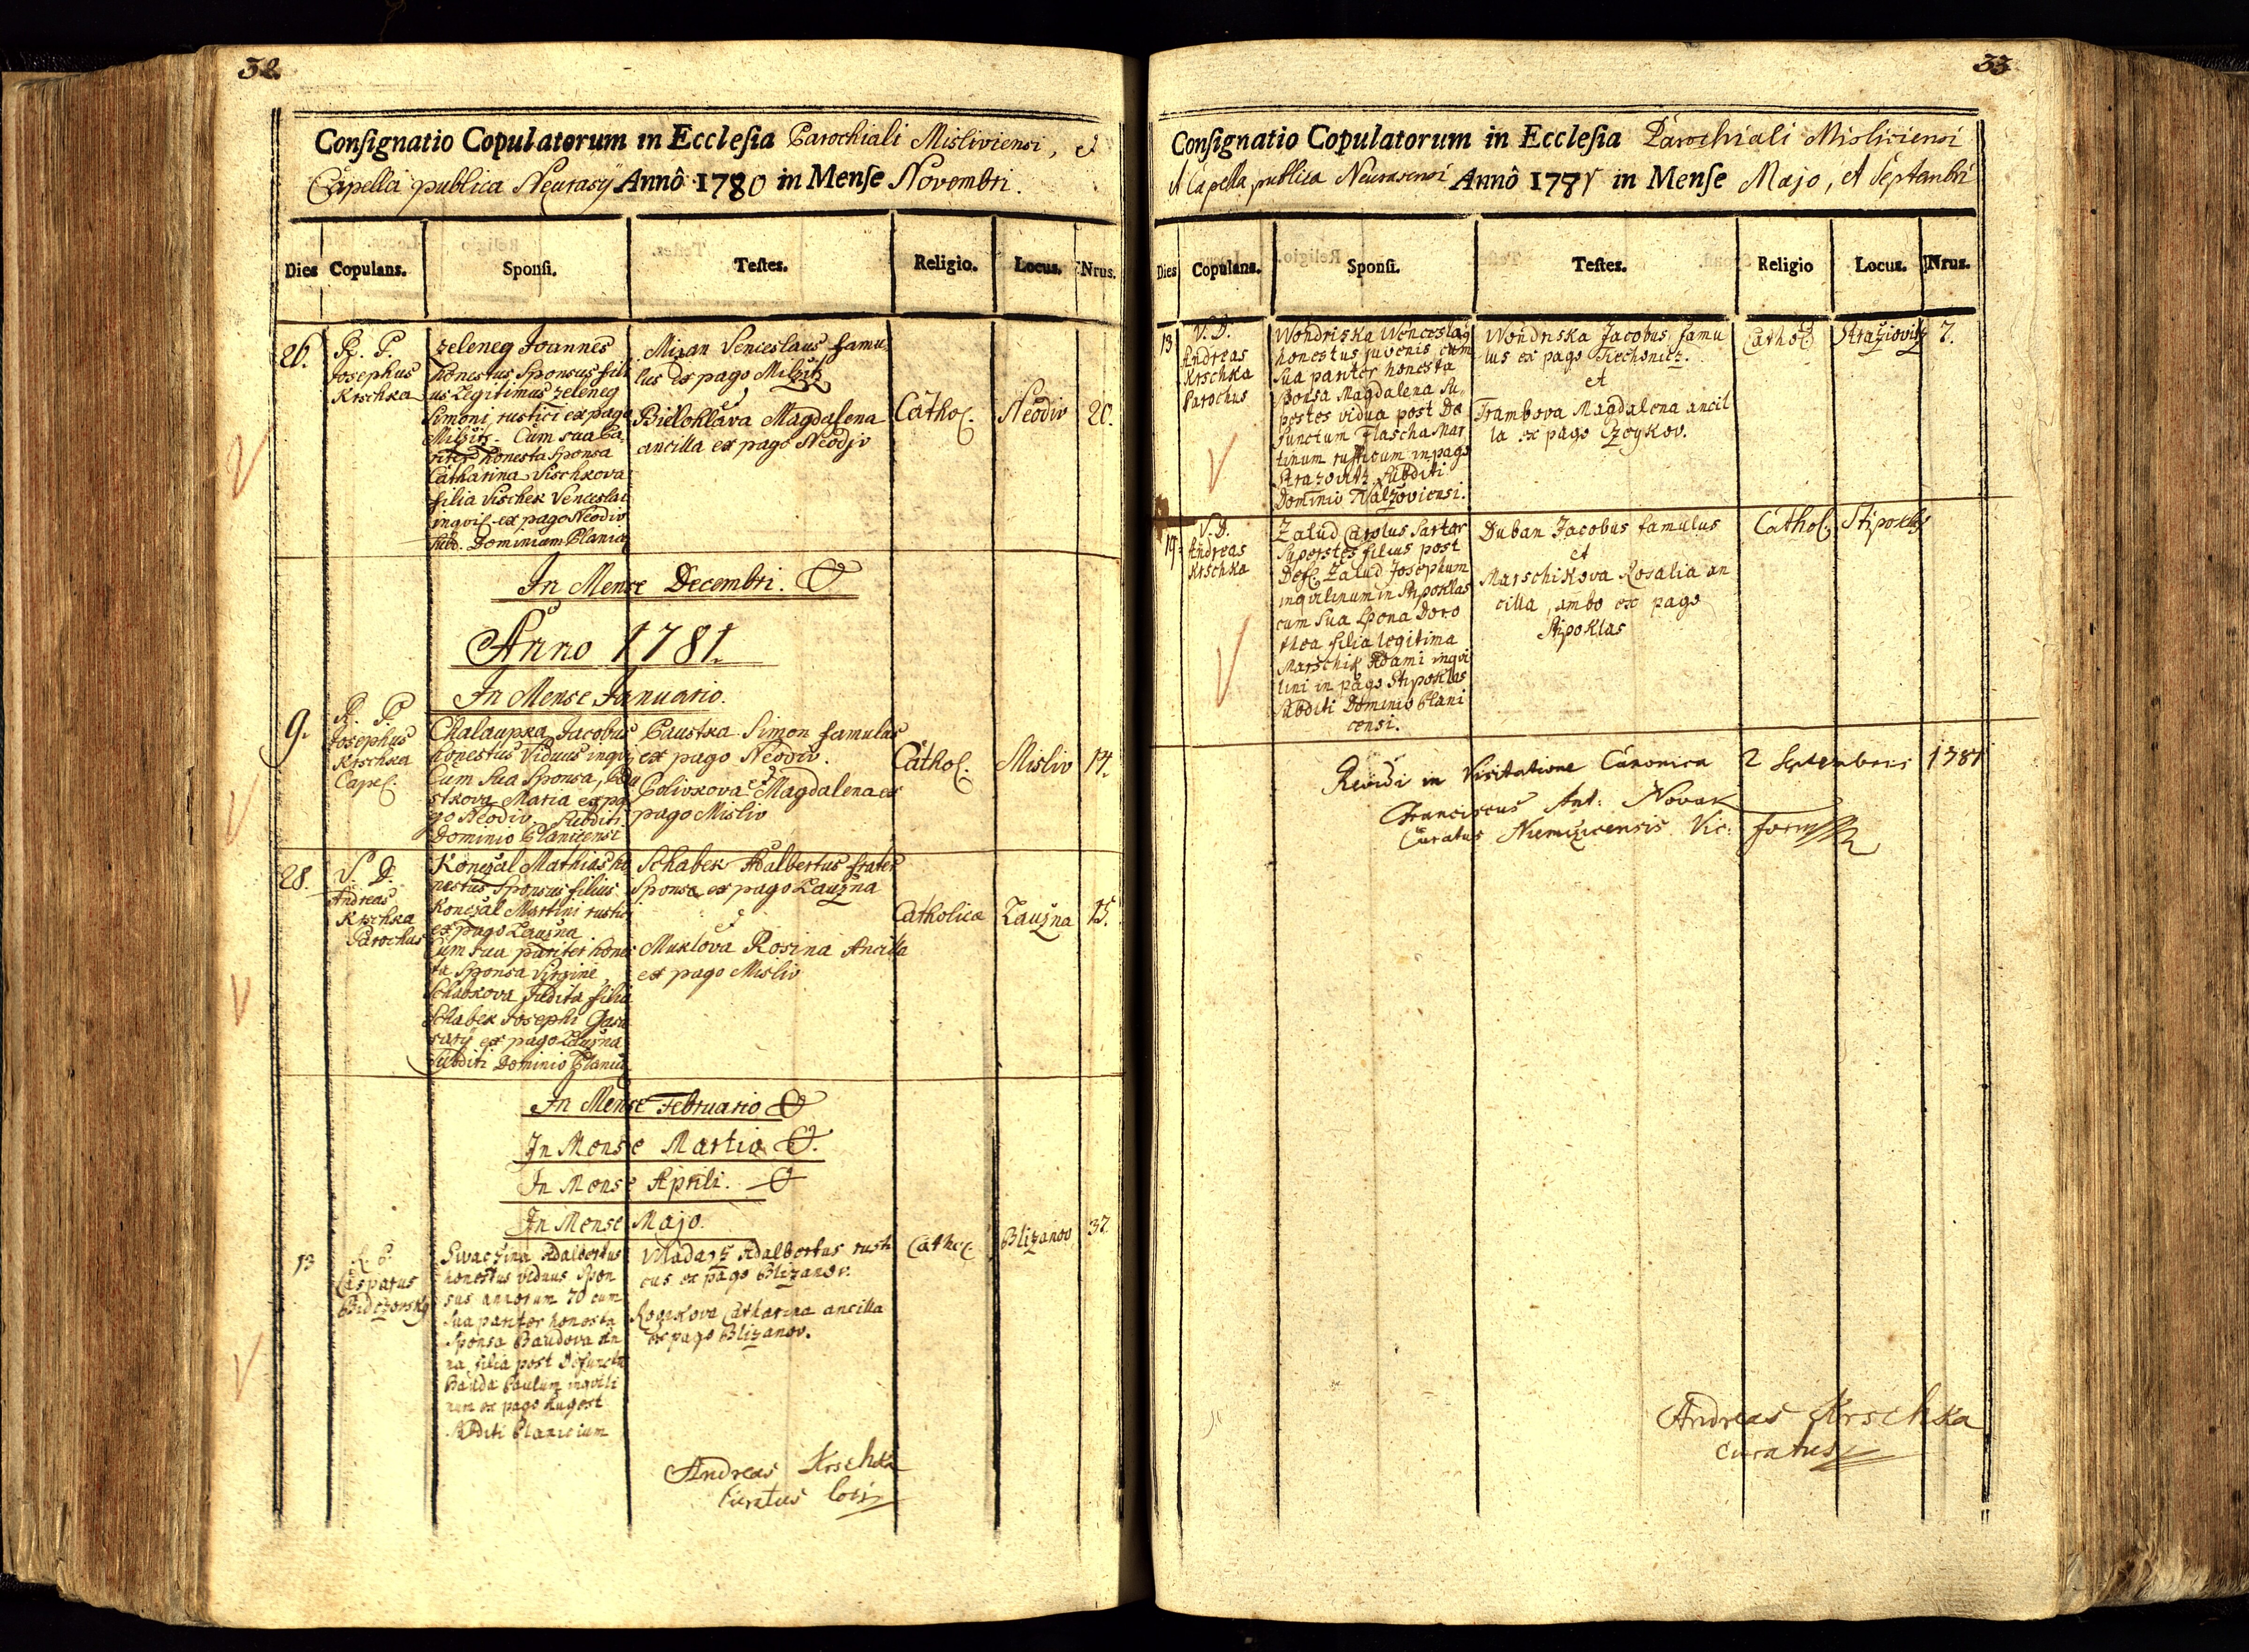 32.
Consignatio Copulatorum in Ecclesia Parochiali Misliviensi, et
Capella publica Neurasÿ Annô 1780 in Mense Novembri.
Dies Copulans. Sponsi. Testes. Religio. Locus. Nrus.
26.
R. P.
Josephus
Krschka
Zeleneg Joannes
honestus Sponsus fili
us Legitimus Zeleneg
Simoni, rustici ex pago
Milzitz. Cum sua Pa
riter honesta Sponsa
Catharina Vischkova
filia Vischek Venceslai
inqvil. ex pago Neodiv
Subd. Dominium Planic
Mizan Venceslaus famu
lus ex pago Milzitz
et
Bielohlava Magdalena
ancilla ex pago Neodiv
Cathol.
Neodiv
20.
In Mense Decembri.
Anno 1781.
In Mense Januario.
9.
R. P.
Josephus
Krschka
Capel.
Chalaupka Jacobus
honestus Viduus inqvi
Cum sua Sponsa, Pau
stkova Maria ex pa
go Neodiv Subditi
Dominio Planicensi
Paustka Simon famulus
ex pago Neodiv.
et
Polivkova Magdalena ex
pago Misliv
Cathol.
Misliv
14.
28.
V. D.
Andreas
Krschka
Parochus
Konczal Mathias ho
nestus Sponsus filius
Konczal Martini rustici
ex pago Zauzna
Cum sua pariter hones
ta Sponsa Virgine
Schabkova Judita filia
Schabek Josephi
ex pago Zauzna
Subditi Dominio Planic
Schabek Adalbertus frater
Sponsæ ex pago Zauzna
et
Muklova Rosina Ancilla
ex pago Misliv
Catholicæ
Zauzna
15.
In Mense Februario
In Mense Martio
In Mense Aprili.
In Mense Majo.
13
R. P.
Casparus
Swaczina Adalbertus
honestus viduus Spon
sus annorum 70 cum
sua pariter honesta
Sponsa Baudova An
na filia post defunctu
Bauda Paulum inqvili
num ex pago
Subditi Planicium
Mladarz Adalbertus rusti
cus ex pago Blizanov.
Catharina ancilla
ex pago Blizanov.
Cathol.
Blizanov
37
Andreas Krschka
Curatus loci
33
Consignatio Copulatorum in Ecclesia Parochiali Misliviensi
et Capella publica Neurasensi Annô 1781 in Mense Majo, et Septembri
Dies Copulans. Sponsi. Testes. Religio Locus. Nrus.
13
V. D.
Andreas
Krschka
Parochus
Wondriska Wenceslaus
honestus juvenis cum
sua pariter honesta
Sponsa Magdalena Su
perstes vidua post De
functum Flascha Mar
tinum rusticum in pago
Strazovitz Subditi
Dominio
Wondriska Jacobus famu
lus ex pago Tiechonicz.
et
Trambova Magdalena ancil
la ex pago Czeykov.
Cathol.
7.
19.
V. D.
Andreas
Krschka
Zalud Carolus Sartor
Superstes filius post
Def. Zalud Josephum
inqvilinum in Stipoklas
cum Sua Spona Doro
thea filia legitima
Marschik Adami inqvi
lini in pago Stipoklas
subditi Dominio Plani
censi.
Duban Jacobus famulus
et
Marschikova Rosalia an
cilla, ambo ex pago
Stipoklas
Cathol.
Stipoklas
Revidi in Visitatione Canonica 2 Septembris 1781
Franciscus Ant: Novak
Curatus Niemczicensis Vic:
Andreas Krschka
Curatus